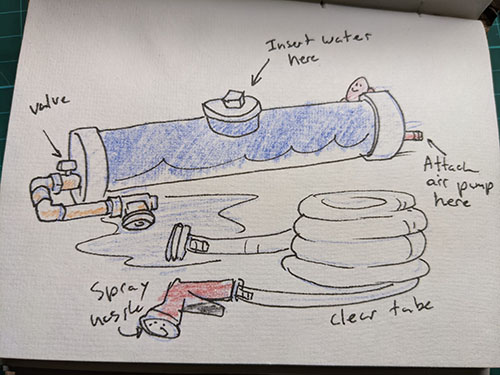 Insert water
here
valve
Attach
air pump
here
Spray
nossle
clear tube